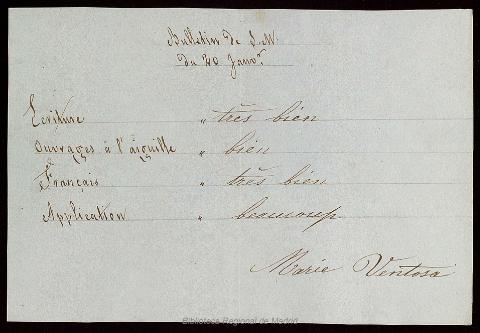 Bulletin de S. M.
du 20 Janvr.
Ecriture " très bien
Ouvrages à l'aiguille " bien
Français " très bien
Application " beaucoup
Marie Ventosa
Biblioteca Regional de Madrid